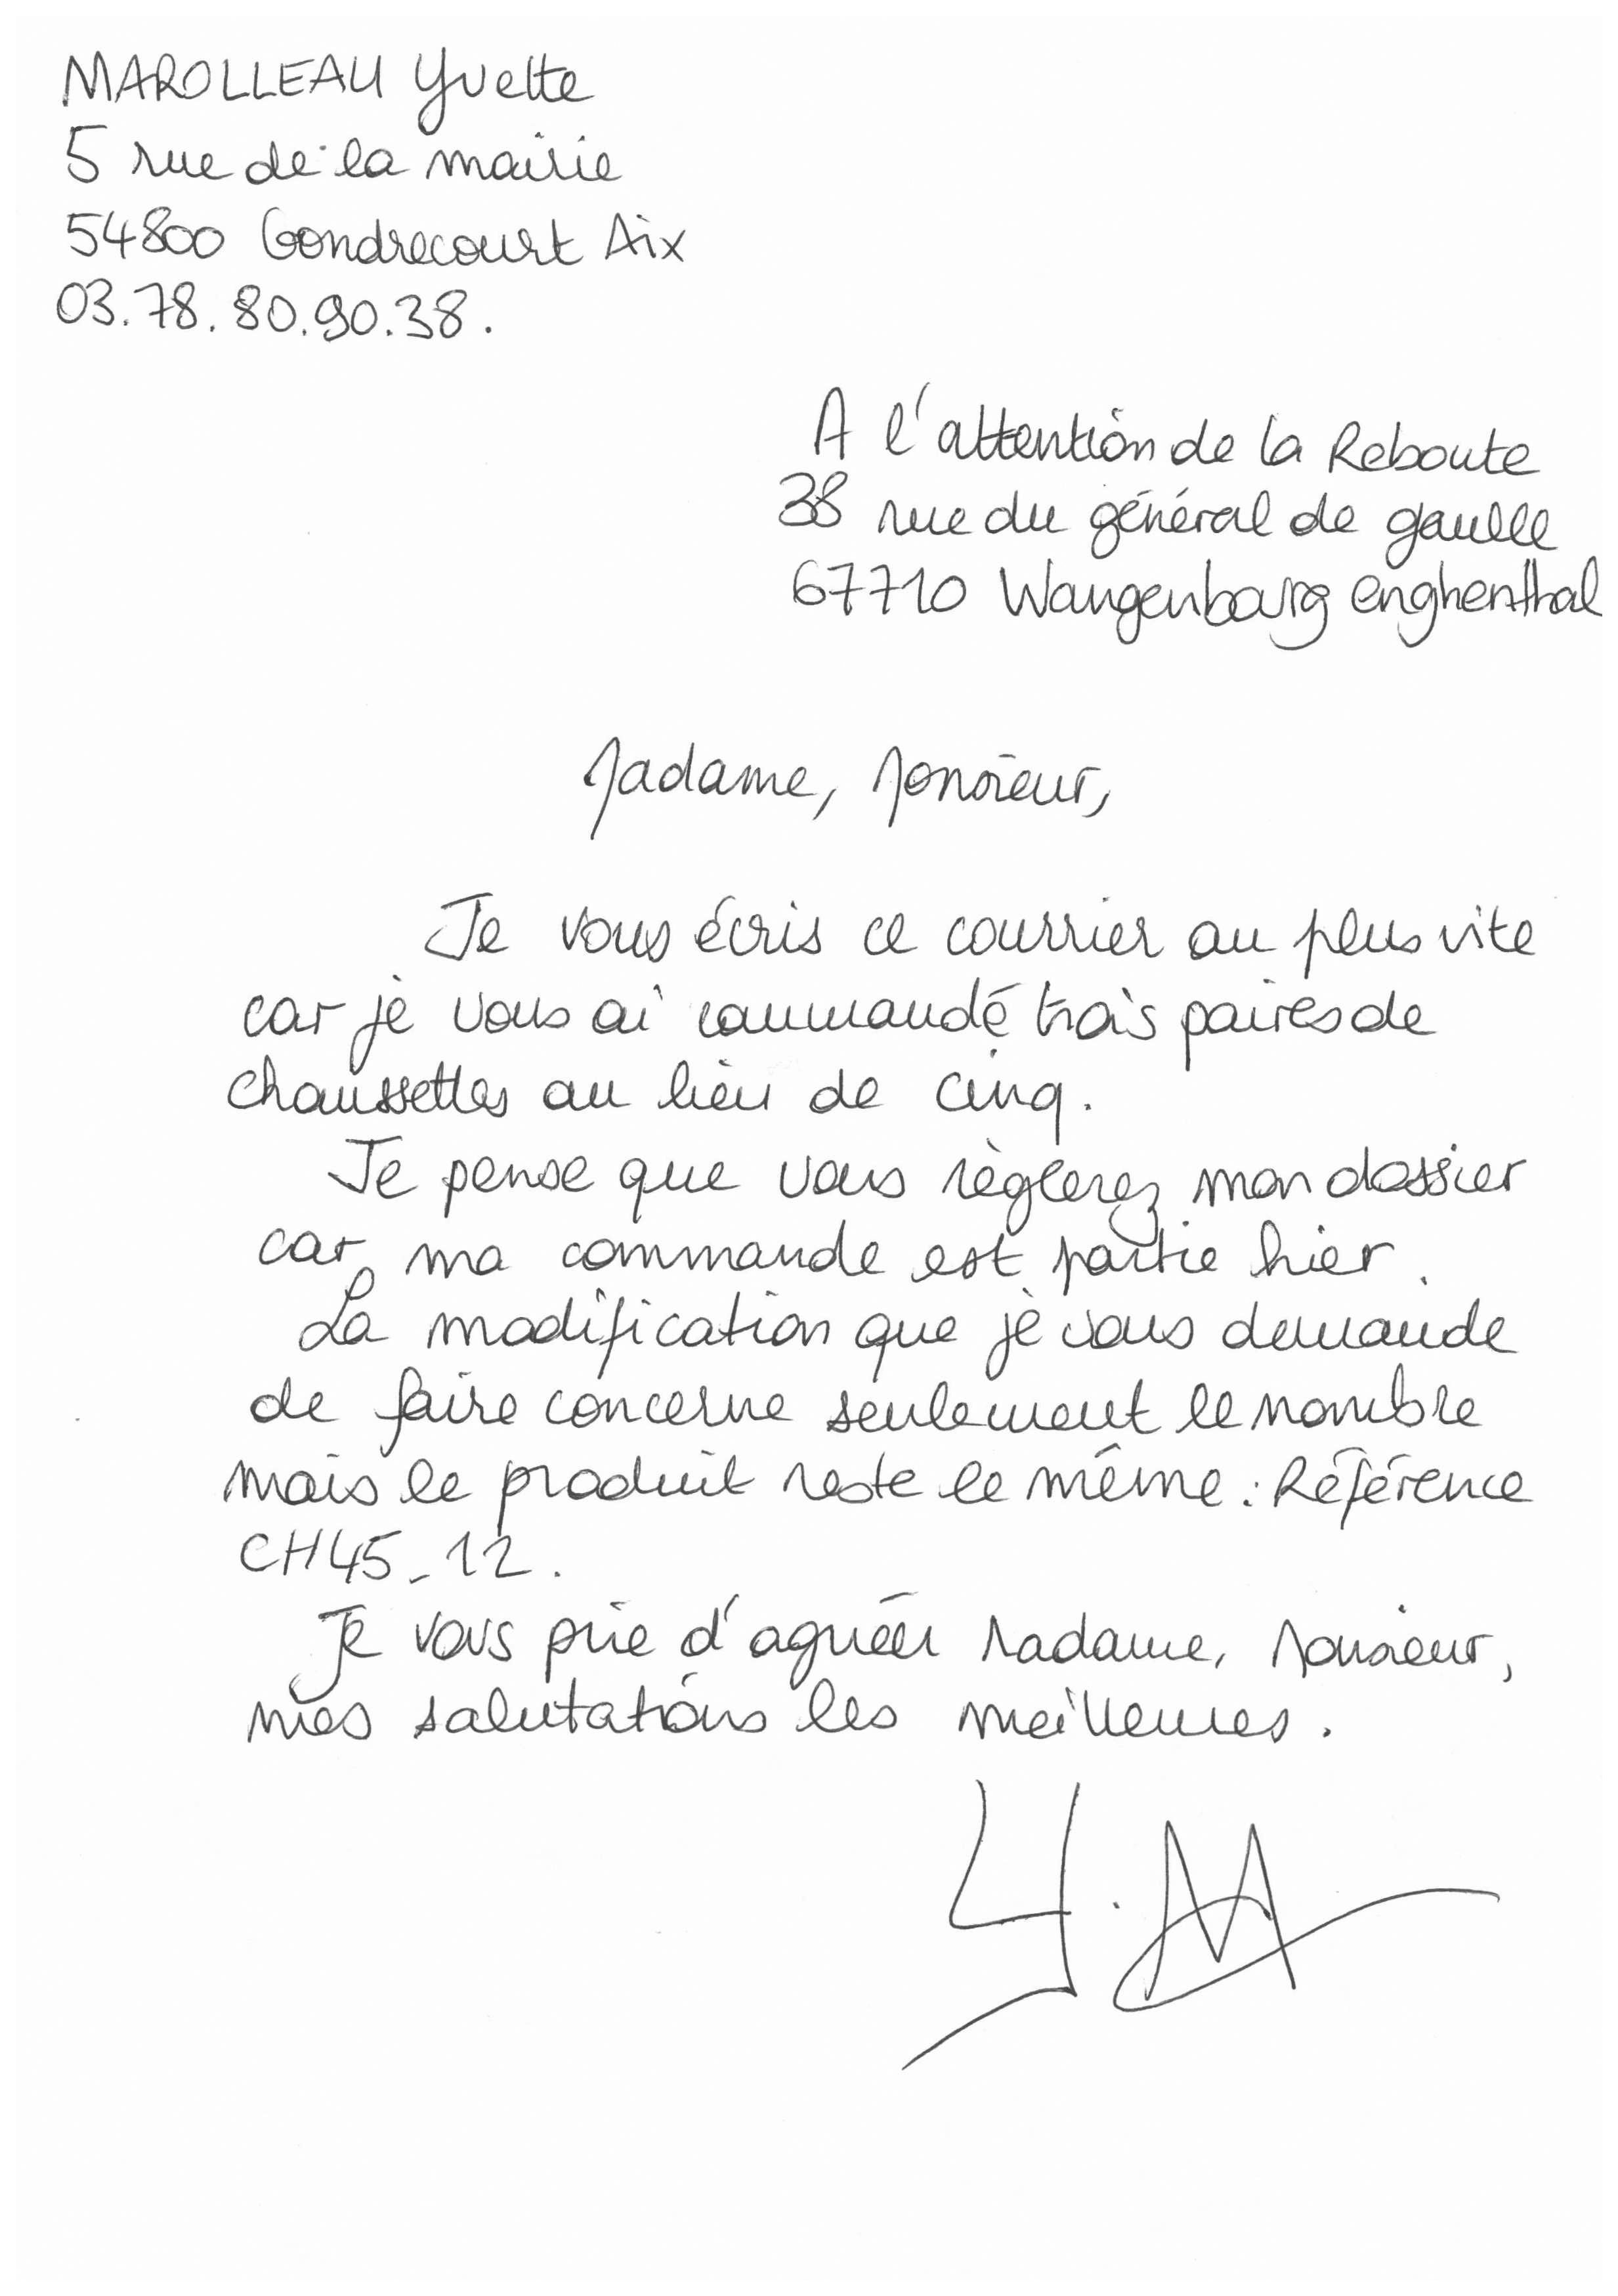 MAROLLEAU Yvette
5 rue de la mairie
54800 Gondrecourt Aix
03.78.80.90.38.
A l'attention de la Reboute
38 rue du général de gaulle
67710 Wangenbourg enghenthal
Madame, Monsieur,
Je vous écris ce courrier au plus vite
car je vous ai commandé trois paires de
chaussettes au lieu de cinq.
Je pense que vous règlerez mon dossier
car ma commande est partie hier.
La modification que je vous demande
de faire concerne seulement le nombre
mais le produit reste le même : Référence
CH45_12.
Je vous prie d'agréer Madame, Monsieur,
mes salutations les meilleures.
Y.M